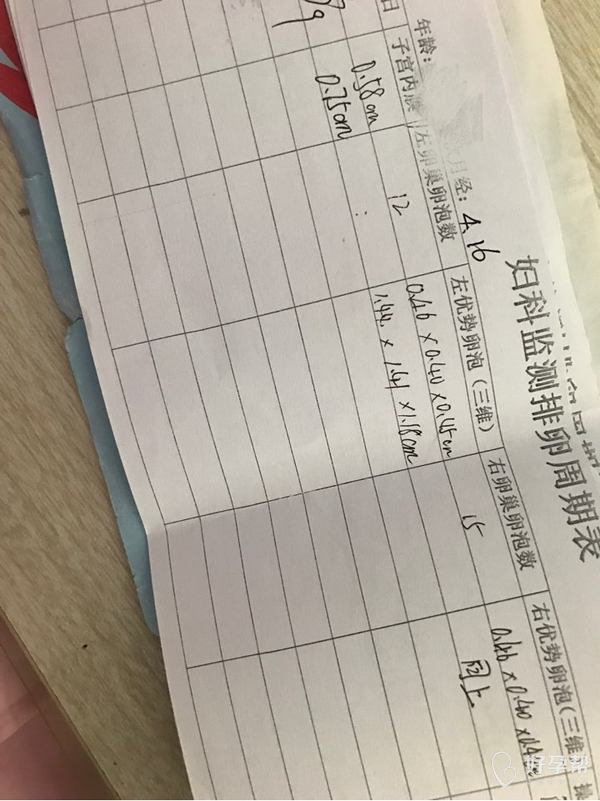 妇科监测排卵周期表
年龄: 月经: 4.16
日 子宫内膜 左卵巢卵泡数 左优势卵泡(三维) 右卵巢卵泡数 右优势卵泡(三维
0.58cm 12 0.46×0.40×0.45cm 15 0.46×0.40×0.4
0.75cm 1.44×1.41×1.18cm 同上
好孕帮